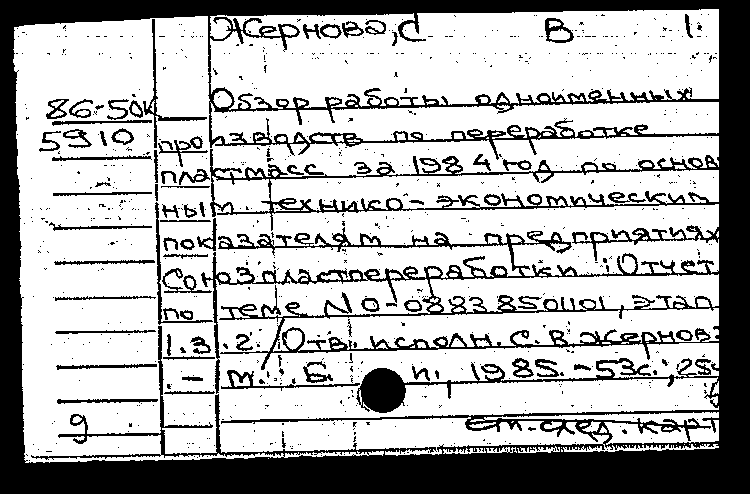 Жернова, С В 1.
86-50к Обзор работы одноименных
5910 производств по переработке
пластмасс за 1984 год по основ
ным технико-экономическим
показателям на предприятиях
Союзпластпереработки : Отчет
по теме NO-08838501101, этап
1.3.2. / Отв. исполн. С.В. Жернова
.- М. : Б. и., 1985. - 53с.;
9 см. след. карт